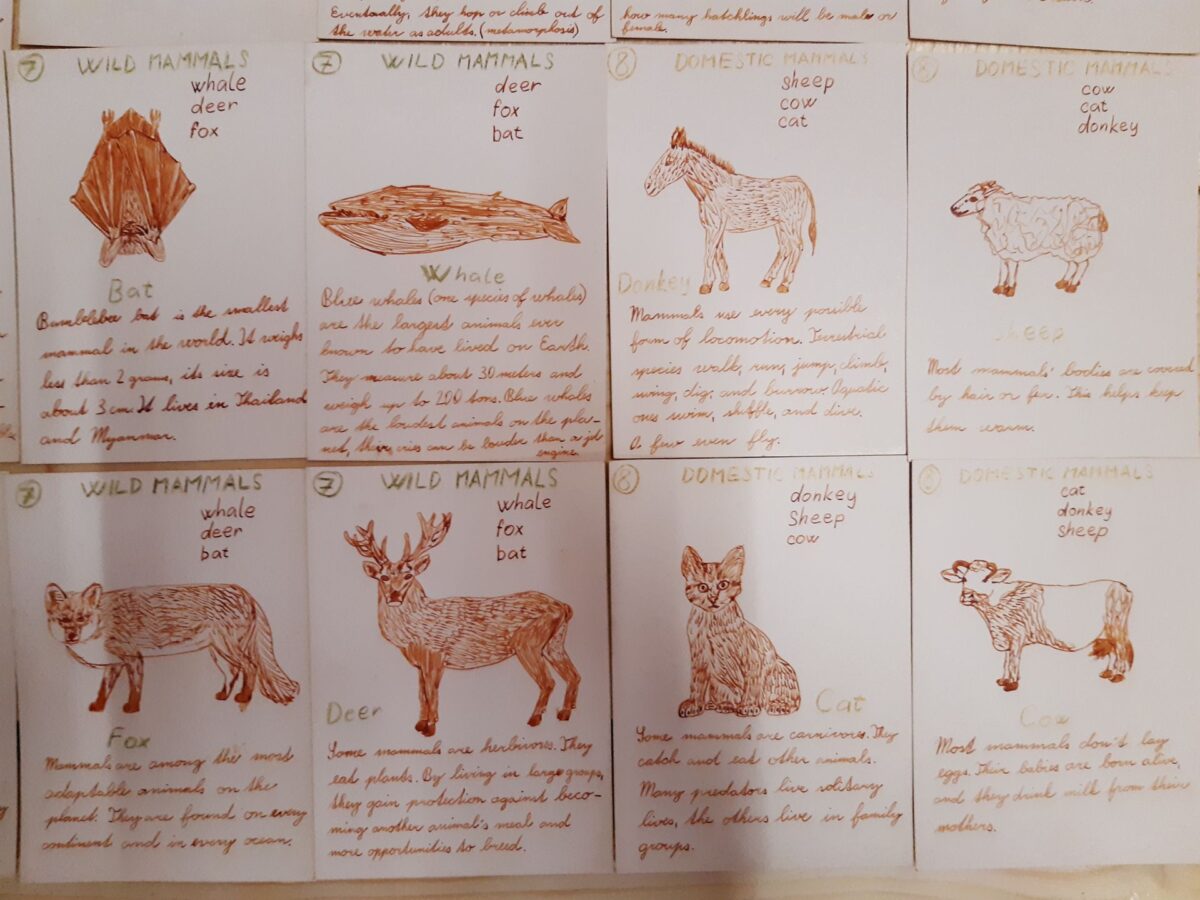 Eventually, they hop or climb out of
the water as adults. (metamorphosis)
how many hatchlings will be male or
female.
7 WILD MAMMALS
whale
deer
fox
Bat
Bumblebee bat is the smallest
mammal in the world. It weighs
less than 2 grams, its size is
about 3 cm. It lives in Thailand
and Myanmar.
7 WILD MAMMALS
deer
fox
bat
Whale
Blue whales (one species of whales)
are the largest animals ever
known to have lived on Earth.
They measure about 30 meters and
weigh up to 200 tons. Blue whales
are the loudest animals on the pla-
net, their cries can be louder than a jet
engine.
8 DOMESTIC MAMMALS
sheep
cow
cat
Donkey
Mammals use every possible
form of locomotion. Terrestrial
species walk, run, jump, climb,
swing, dig, and burrow. Aquatic
ones swim, shuffle, and dive.
A few even fly.
8 DOMESTIC MAMMALS
cow
cat
donkey
Sheep
Most mammals' bodies are covered
by hair or fur. This helps keep
them warm.
7 WILD MAMMALS
whale
deer
bat
Fox
Mammals are among the most
adaptable animals on the
planet. They are found on every
continent and in every ocean.
7 WILD MAMMALS
whale
fox
bat
Deer
Some mammals are herbivores. They
eat plants. By living in large groups,
they gain protection against beco-
ming another animal's meal and
more opportunities to breed.
8 DOMESTIC MAMMALS
donkey
Sheep
cow
Cat
Some mammals are carnivores. They
catch and eat other animals.
Many predators live solitary
lives, the others live in family
groups.
8 DOMESTIC MAMMALS
cat
donkey
sheep
Cow
Most mammals don't lay
eggs. Their babies are born alive,
and they drink milk from their
mothers.